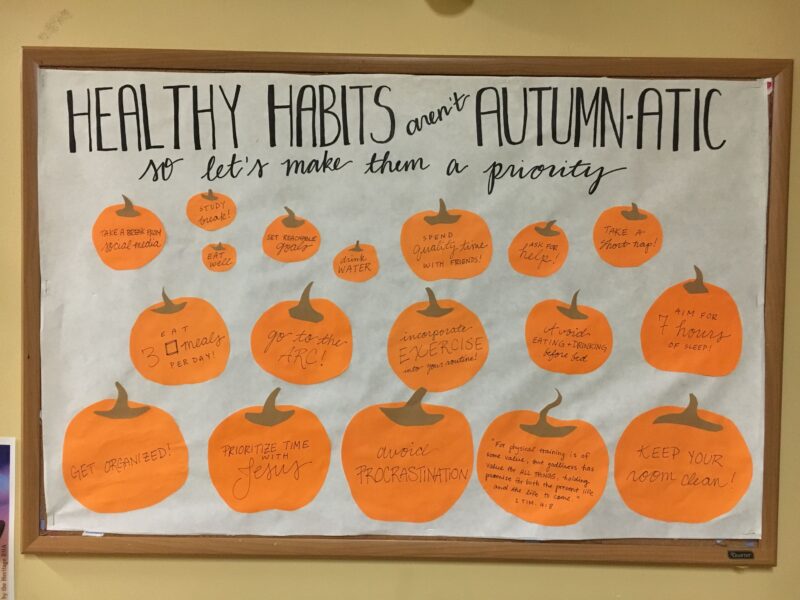 HEALTHY HABITS aren't AUTUMN-ATIC
so let's make them a priority
TAKE A BREAK FROM
social media
STUDY
break!
EAT
well
SET REACHABLE
goals
drink
WATER
SPEND
quality time
WITH FRIENDS!
ASK FOR
help!
TAKE A
short nap!
EAT
3 □ meals
PER DAY!
go to the
ARC!
incorporate
EXERCISE
into your routine!
Avoid
EATING + DRINKING
before bed
AIM FOR
7 hours
OF SLEEP!
GET ORGANIZED!
PRIORITIZE TIME
WITH
Jesus
avoid
PROCRASTINATION
"For physical training is of
some value, but godliness has
value for ALL THINGS, holding
promise for both the present life
and the life to come."
1 TIM. 4:8
KEEP YOUR
room clean!
by the Heritage